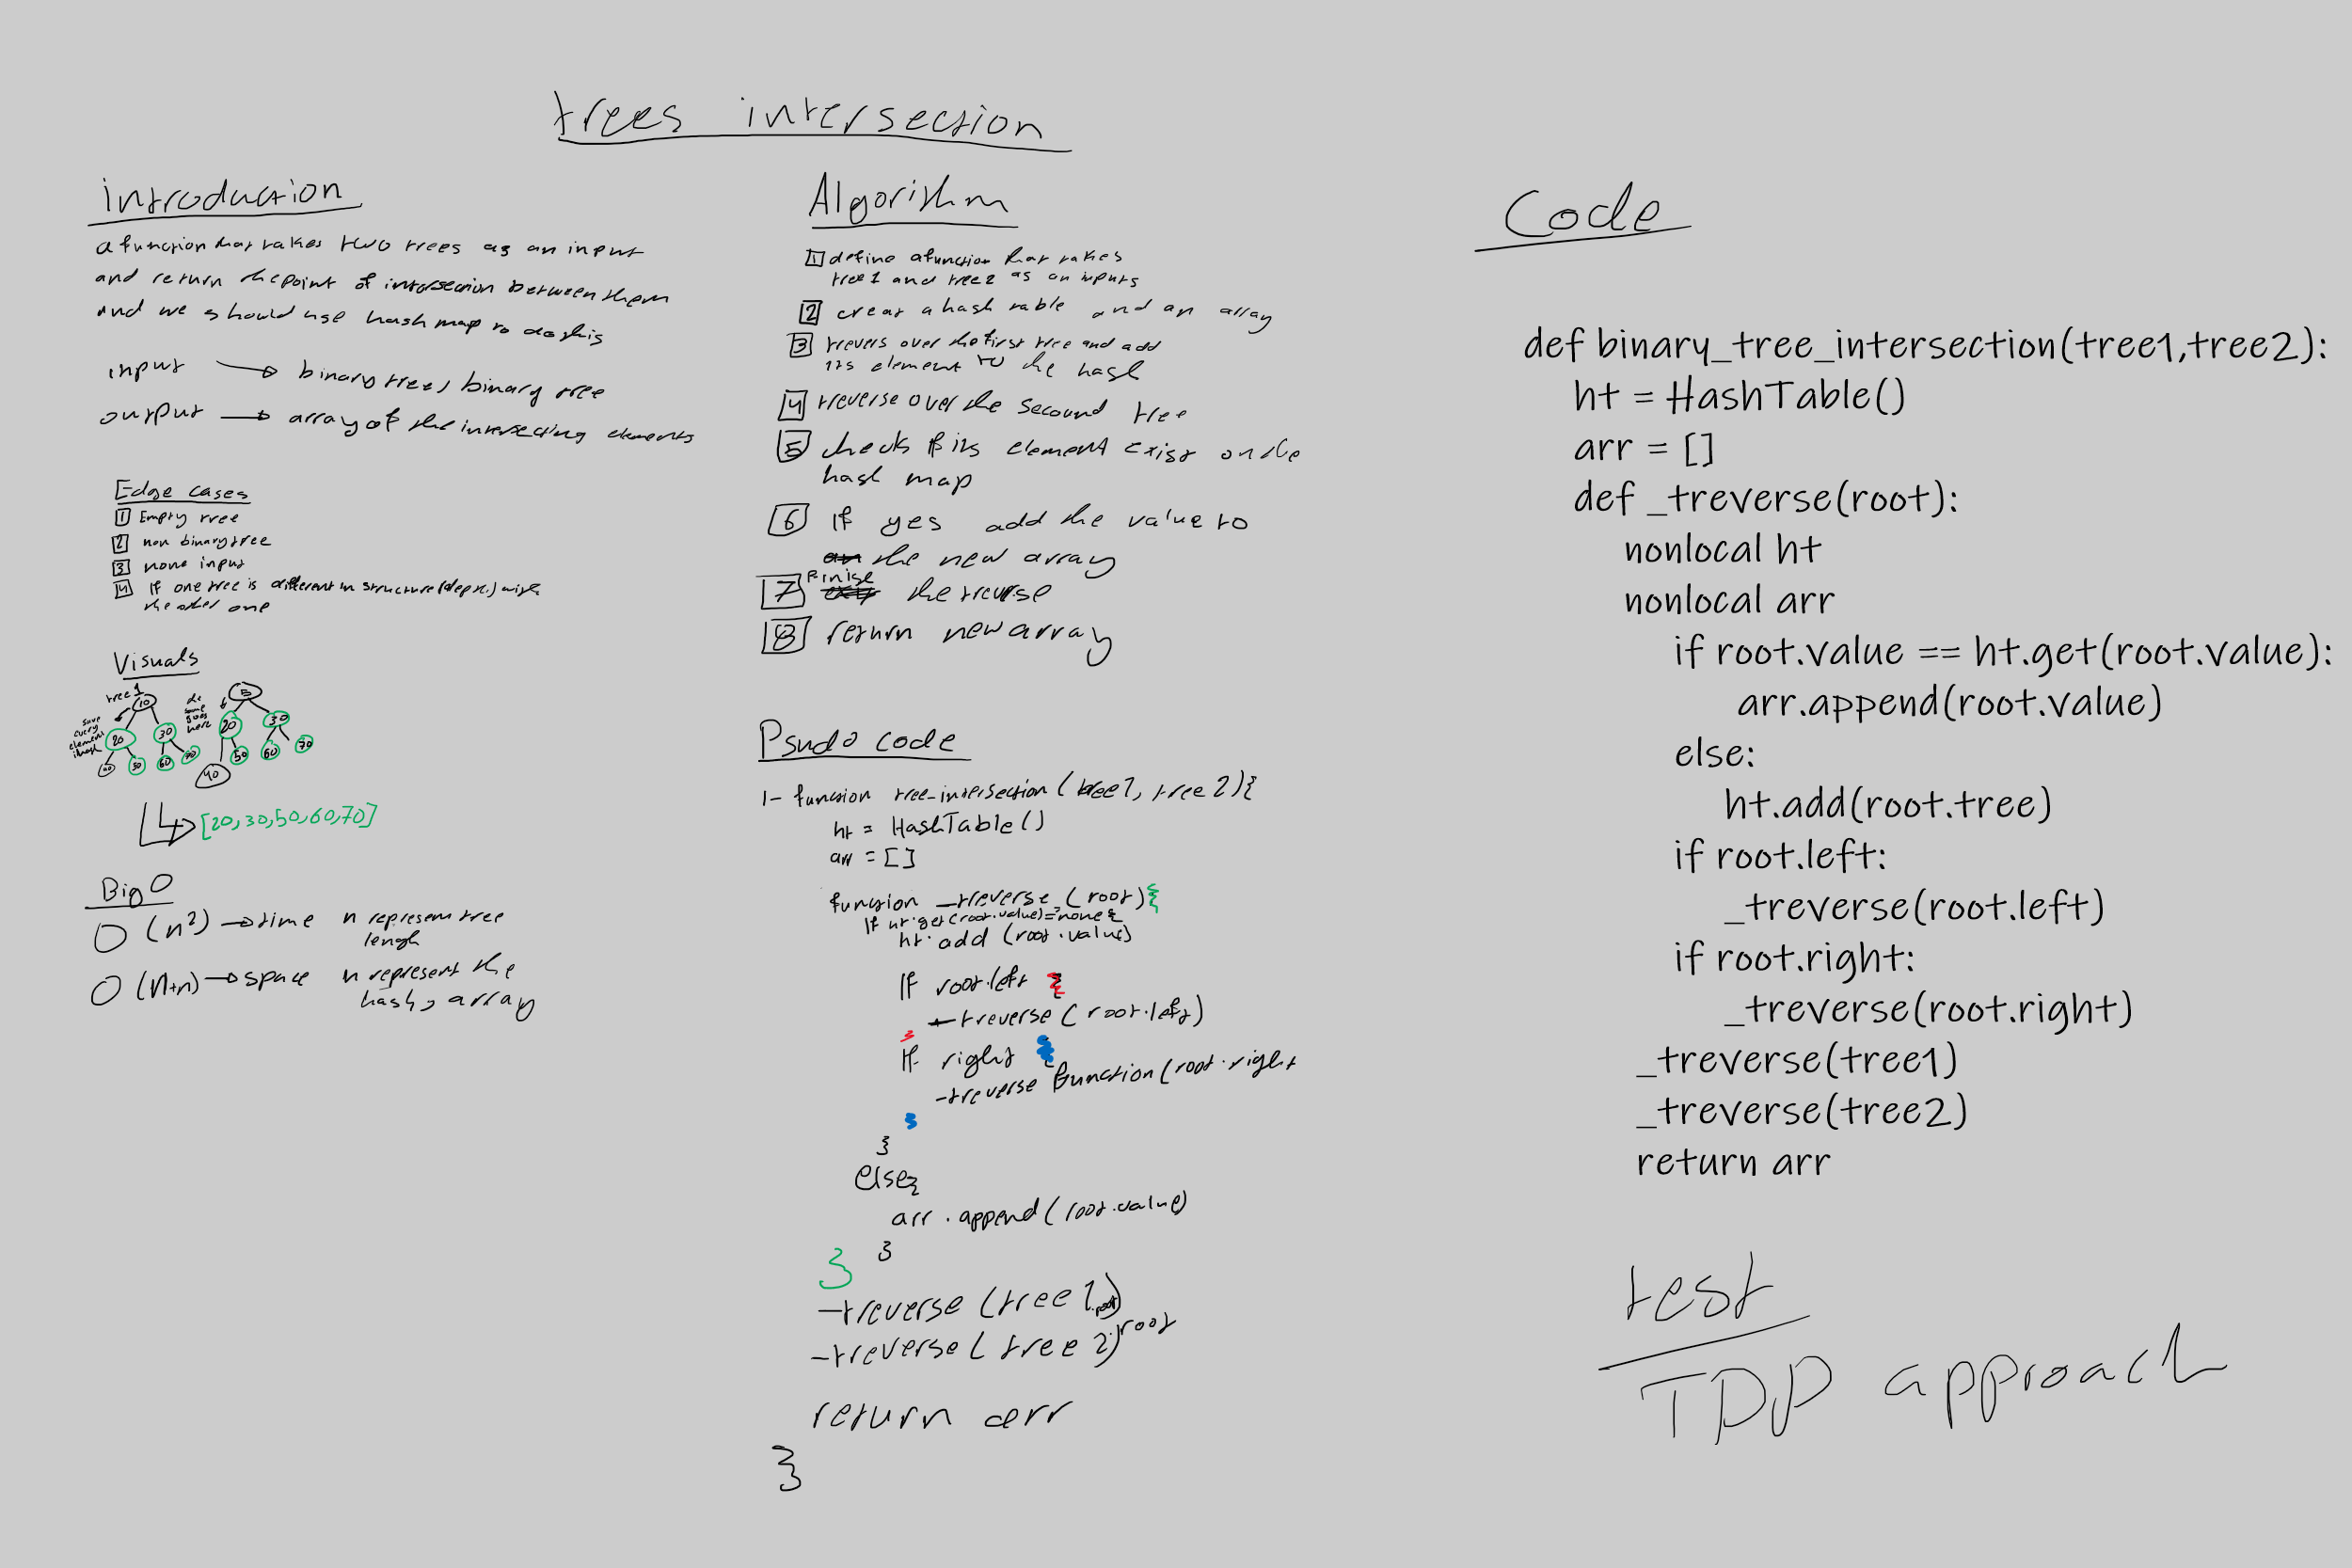 trees intersection
introduction
a function that takes two trees as an input
and return the point of intersection between them
and we should use hash map to do this
input → binary tree, binary tree
output → array of the intersecting elements
Edge cases
1 Empty tree
2 non binary tree
3 none input
4 If one tree is different in structure (depth) with
the other one
Visuals
tree 1
save
every
element
10
20
30
50
60
the
same
goes
here
5
20
30
40
50
60
70
[20,30,50,60,70]
Big O
O (n²) → time n represent tree
lengh
O (n+n) → space n represent the
hash, array
Algorithm
1 define a function that takes
tree1 and tree2 as an inputs
2 creat a hash table and an array
3 trevers over the first tree and add
its element to the hash
4 treverse over the secound tree
5 check if its element exist on the
hash map
6 if yes add the value to
an the new array
7 finise the treverse
8 return new array
Psudo code
1- function tree_intersection (tree1, tree2){
ht = HashTable()
arr = []
function _treverse (root){
If ht.get(root.value)=none{
ht.add (root.value)
If root.left {
_treverse (root.left)
}
If right {
_treverse function (root.right
}
}
else{
arr.append(root.value)
}
}
_treverse (tree 1.root)
_treverse (tree 2) root
return arr
}
Code
def binary_tree_intersection(tree1,tree2):
ht = HashTable()
arr = []
def _treverse(root):
nonlocal ht
nonlocal arr
if root.value == ht.get(root.value):
arr.append(root.value)
else:
ht.add(root.tree)
if root.left:
_treverse(root.left)
if root.right:
_treverse(root.right)
_treverse(tree1)
_treverse(tree2)
return arr
test
TDD approach